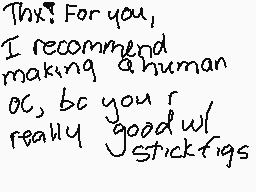 Thx! For you,
I recommend
making a human
oc, bc you r
really good w/
stickfigs